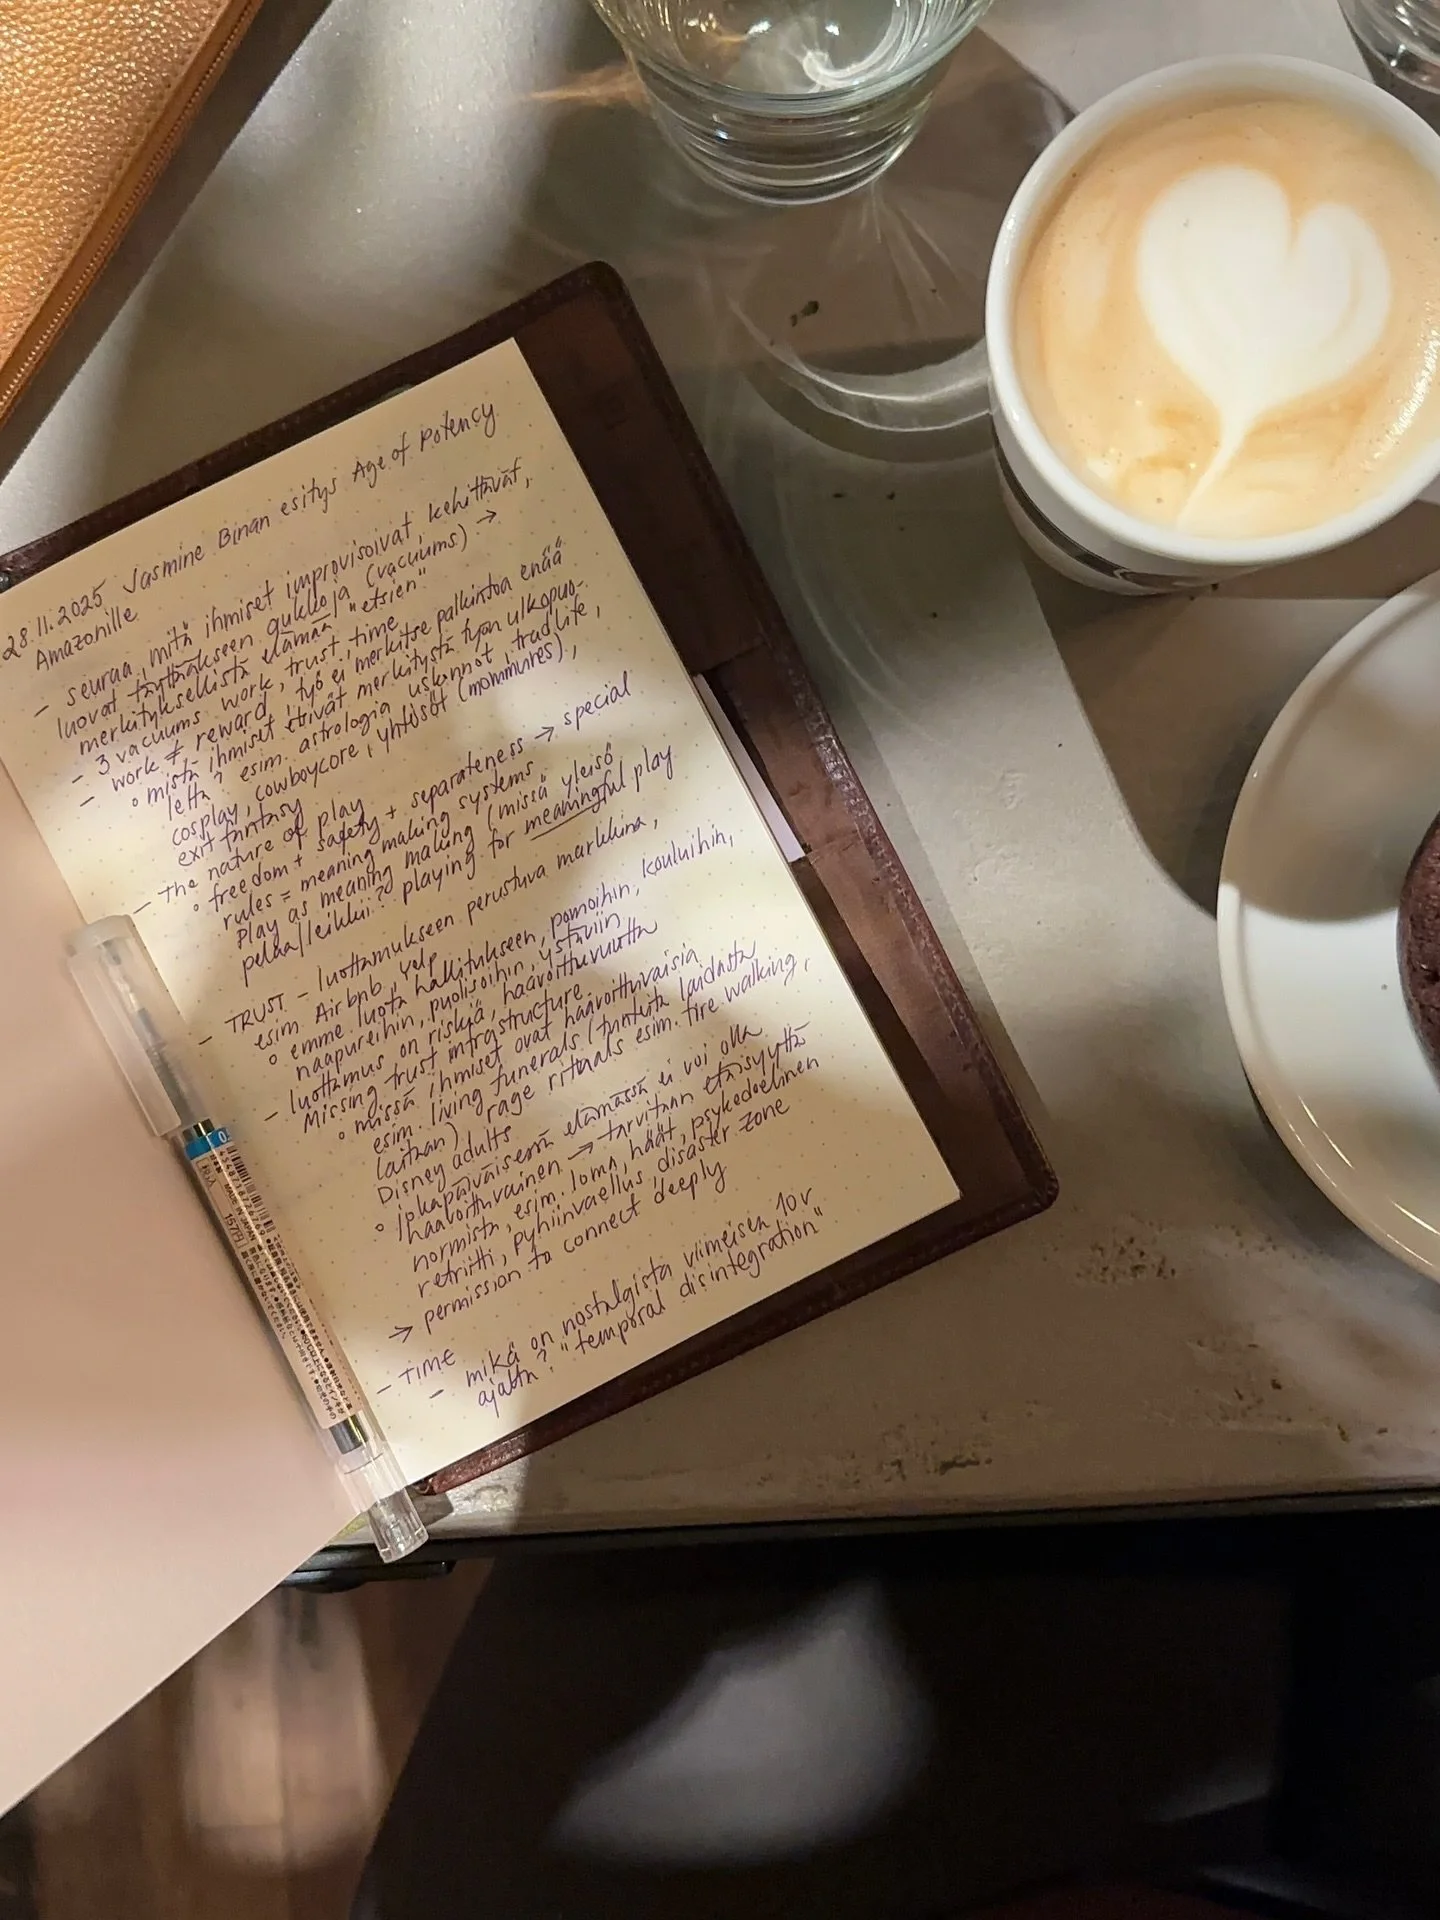 28.11.2025 Jasmine Binan esitys Age of Potency
Amazonille
- seuraa mitä ihmiset improvisoivat, kehittävät,
luovat täyttääkseen aukkoja (vacuums) →
merkityksellistä elämää "etsien"
- 3 vacuums work, trust, time
- work ≠ reward, työ ei merkitse palkintoa enää
° mistä ihmiset etsivät merkitystä työn ulkopuo-
lelta? esim. astrologia, uskonnot, tradlife,
cosplay, cowboycore, yhtisöt (mommunes),
exit fantasy
- The nature of play
° freedom + safety + separateness → special
rules = meaning making systems
play as meaning making (missä yleisö
pelaa/leikkii? playing for meaningful play
- TRUST - luottamukseen perustuva markkina,
esim. Airbnb, Yelp
° emme luota hallitukseen, pomoihin, kouluihin,
naapureihin, puolisoihin, ystäviin
- luottamus on riskiä, haavoittuvuutta
Missing trust infrastructure
° missä ihmiset ovat haavoittuvaisia
esim. living funerals (tunteita laidasta
laitaan) rage rituals esim. fire walking,
Disney adults
° jokapäiväisessä elämässä ei voi olla
haavoittuvainen → tarvitaan etäisyyttä
normista, esim. loma, häät, psykedeelinen
retriitti, pyhiinvaellus, disaster zone
→ permission to connect deeply
- TIME
- mikä on nostalgista viimeisen 10v
ajalta? "temporal disintegration"
0.
MADE IN JAPAN
157円